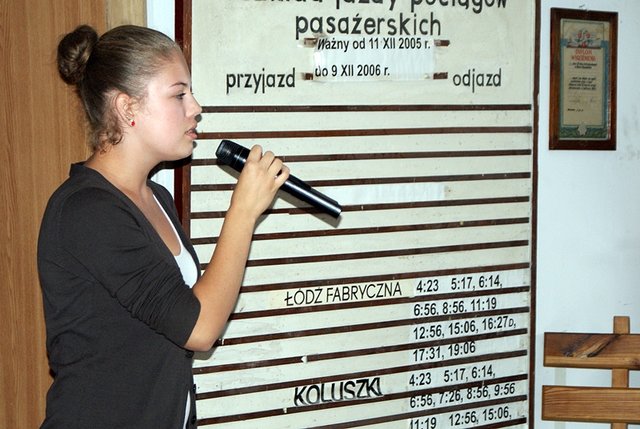 rozkład jazdy pociągów
pasażerskich
Ważny od 11 XII 2005 r.
przyjazd do 9 XII 2006 r. odjazd
ŁÓDŹ FABRYCZNA 4:23 5:17, 6:14,
6:56, 8:56, 11:19
12:56, 15:06, 16:27D,
17:31, 19:06
KOLUSZKI 4:23 5:17, 6:14,
6:56, 7:26, 8:56, 9:56
11:19 12:56, 15:06,
DYPLOM